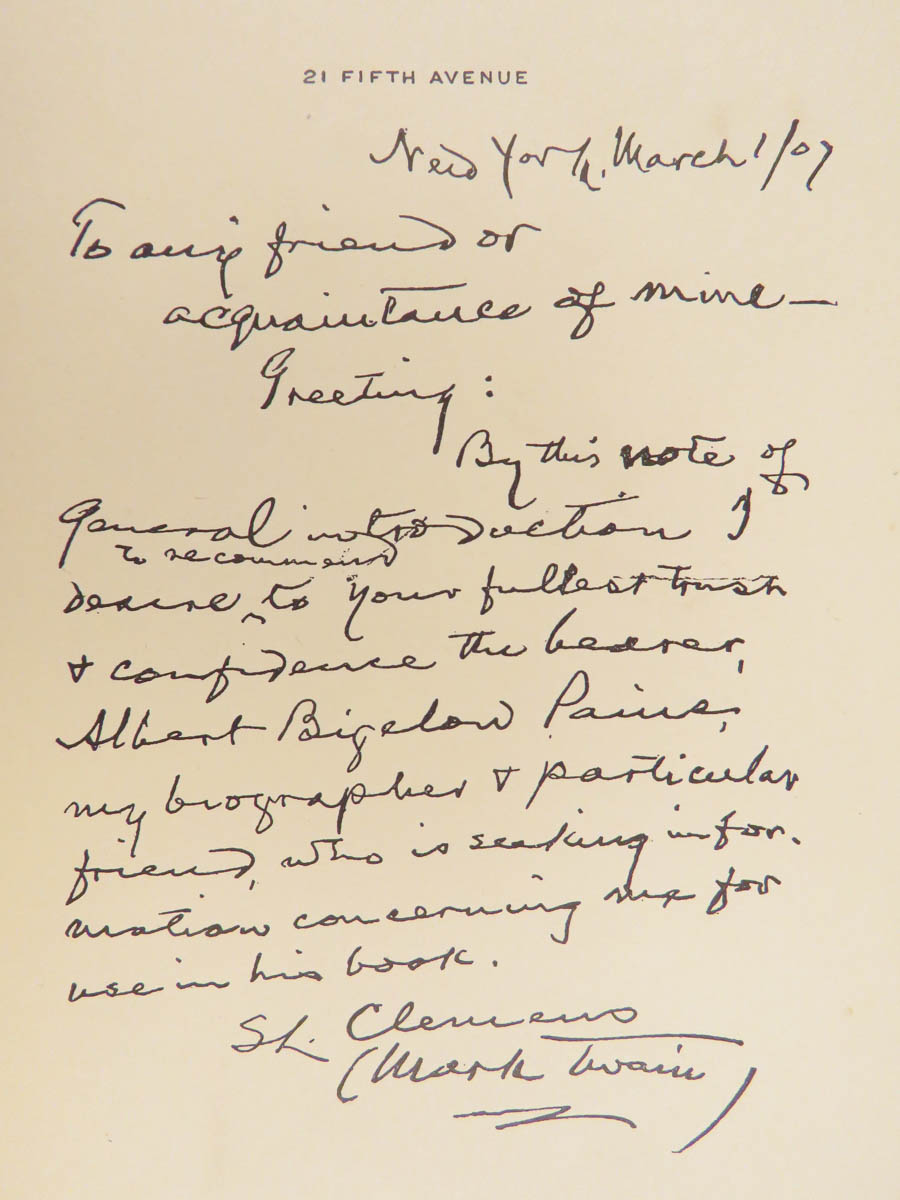 21 FIFTH AVENUE
New York, March 1/07
To any friend or
acquaintance of mine—
Greeting:
By this note of
General introduction I
to recommend
desire ‸ to your fullest trust
& confidence the bearer,
Albert Bigelow Paine,
my biographer & particular
friend, who is seeking infor-
mation concerning me for
use in his book.
SL. Clemens
(Mark Twain)